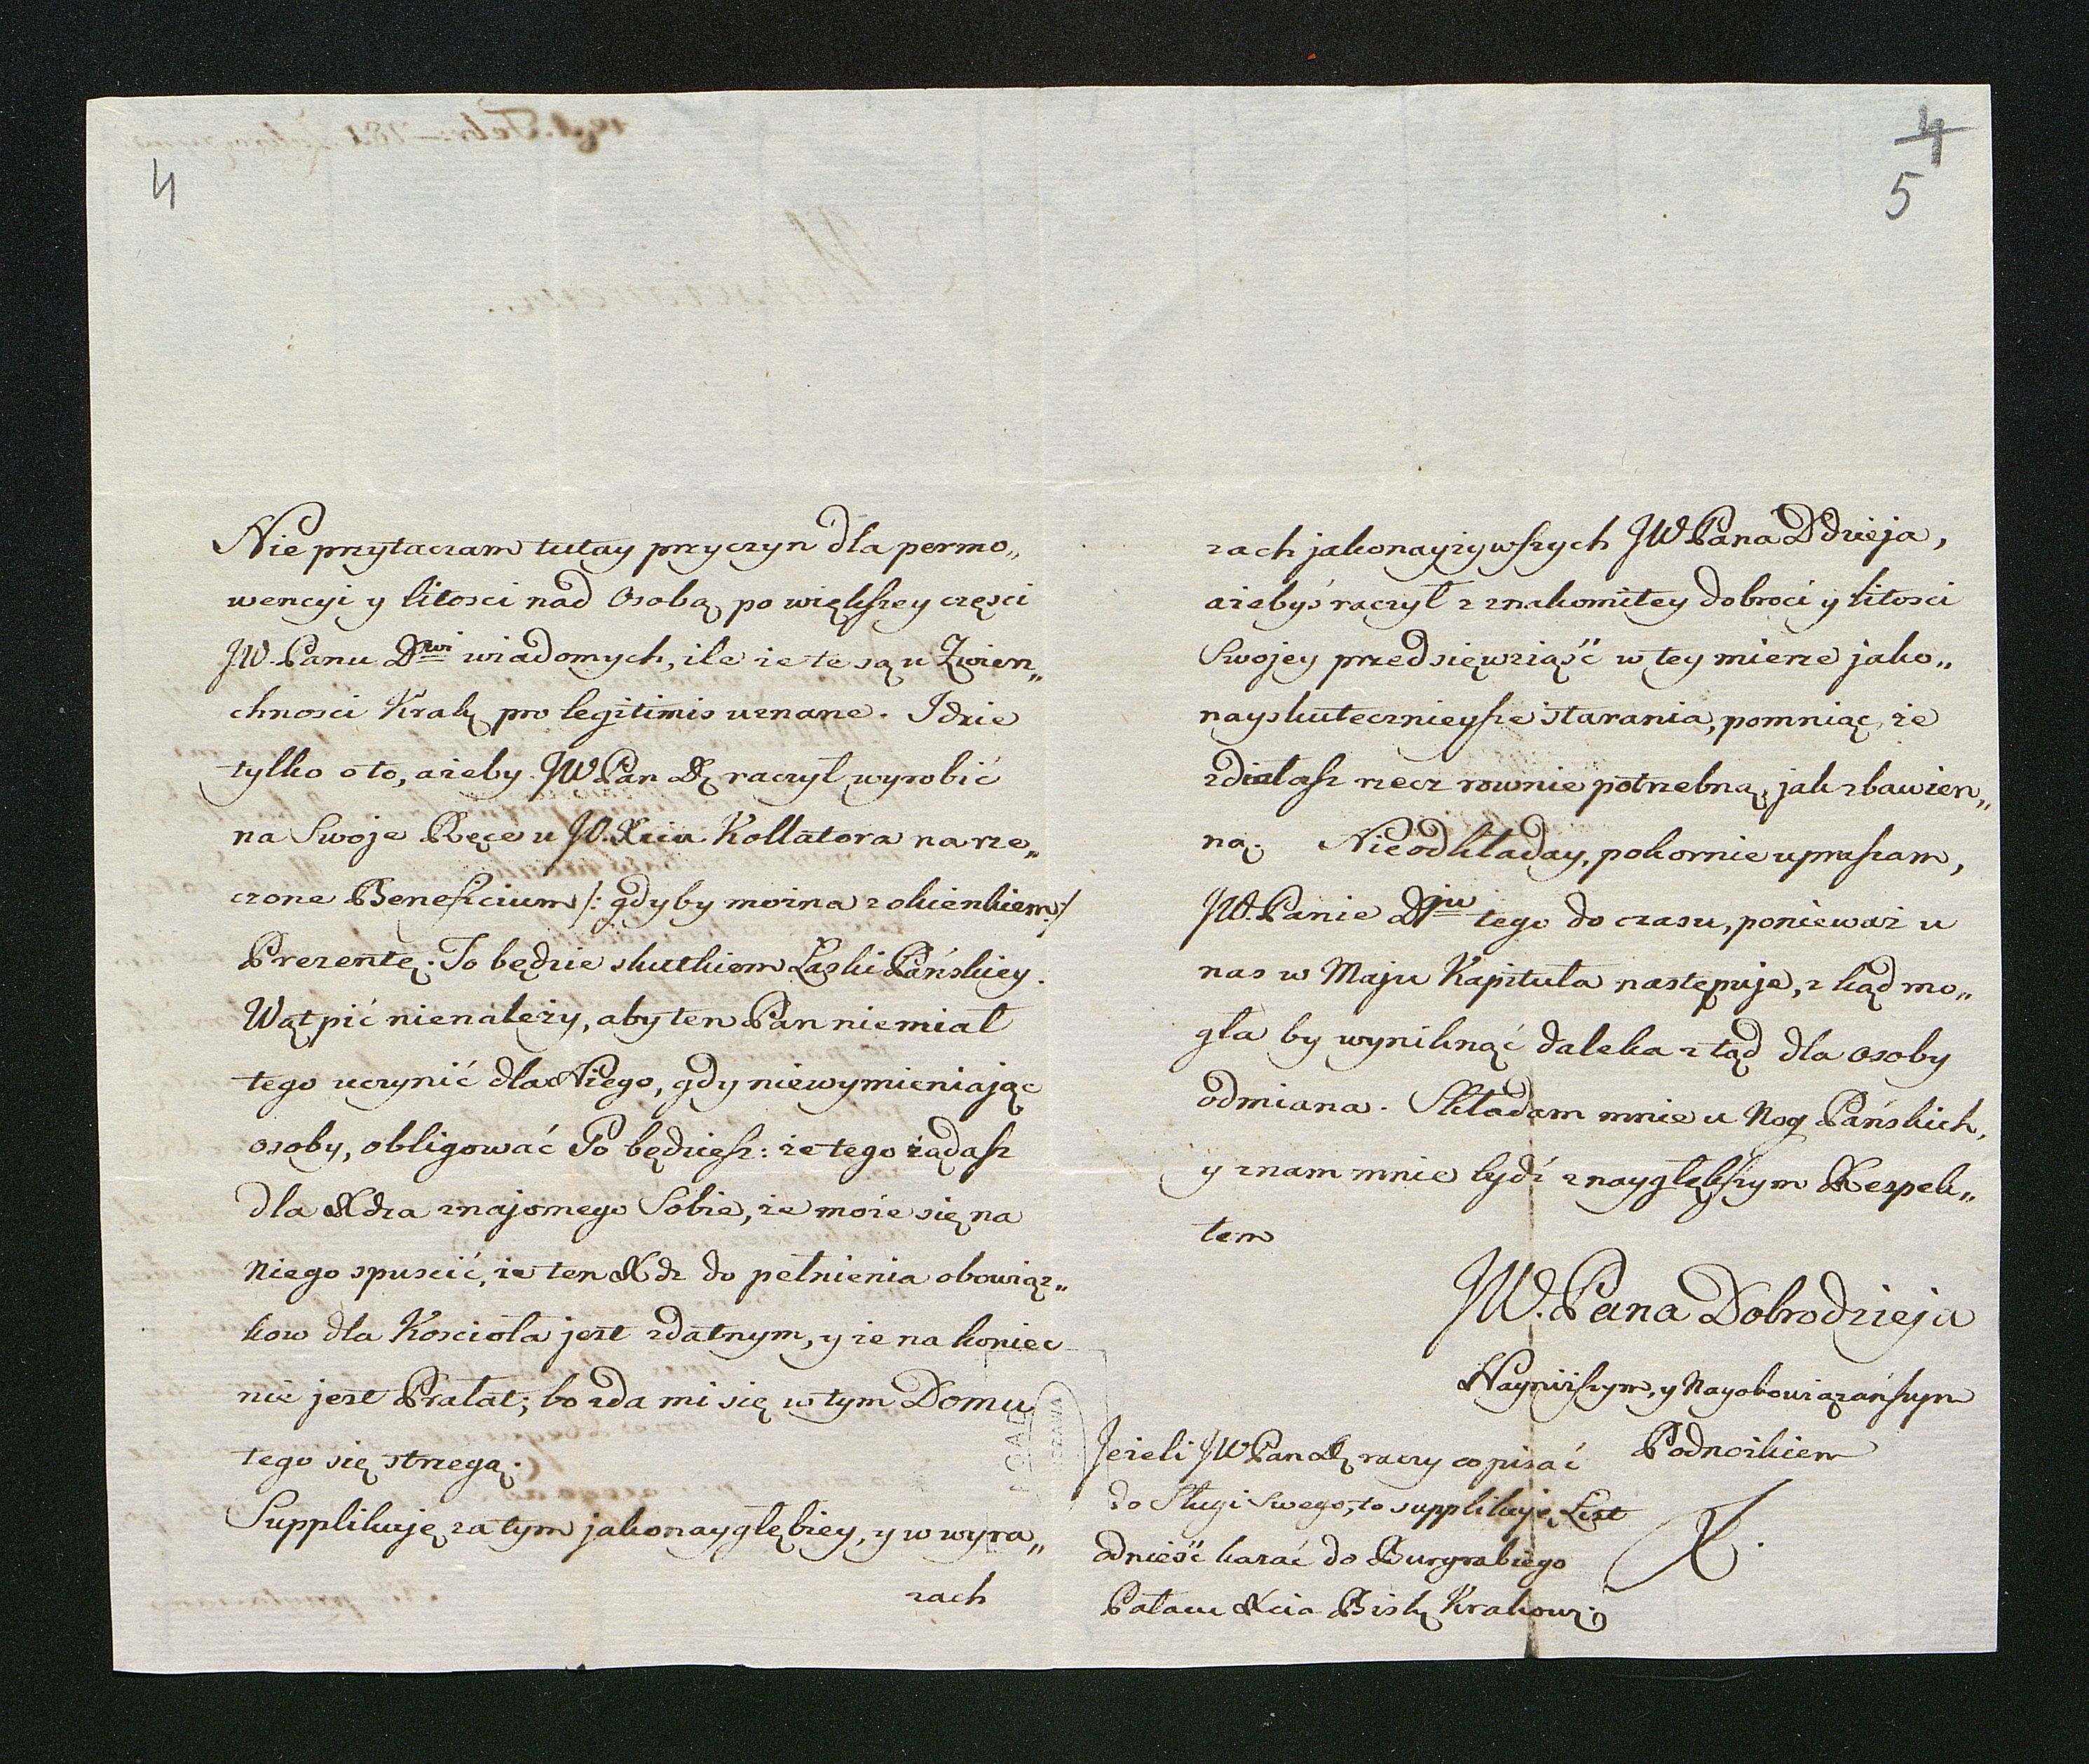 4
Nie przytaczam tutay przyczyn dla permo„
wencyi y litosci nad Osobą, po większey części
JW. Panu Drwi wiadomych, ile że te są u Zwierz„
chnosci Kralę pro legitimis uznane. Idzie
tylko o to, ażeby JW Pan Dź raczył wyrobić
na Swoje Ręce u JO. Xcia Kollatora na rze„
czone Beneficium /: gdyby można z okienkiem :/
Prezentę. To będzie skutkiem Łaski Pańskiey.
Wątpić nienależy, aby ten Pan niemiał
tego uczynić dla Niego, gdy niewymieniając
osoby, obligować Go będziesz: że tego żądasz
dla Xdza znajomego Sobie, że może się na
Niego spuscić, że ten Xdz do pełnienia obowiąz„
kow dla Kościoła jest zdatnym, y że na koniec
nie jest Prałat; bo zda mi się w tym Domu
tego się strzegą.
Supplikuję za tym jakonaygłębiey, y w wyra„
rach
4
5
rach jakonayżywszych JW Pana Ddzieja,
ażebyś raczył z znakomitey dobroci y litosci
Swojey przedsięwziąść w tey mierze jako„
nayskutecznieysze starania, pomniąc, że
zdziałasz rzecz rownie potrzebną, jak zbawien„
ną. Nieodkładay, pokornie upraszam,
JW. Panie Dju tego do czasu, ponieważ u
nas w Maju Kapituła następuje, z kąd mo„
gła by wyniknąć daleka z tąd dla osoby
odmiana. Składam mnie u Nog Pańskich,
y znam mnie bydź z naygłębszym Respek„
tem
JW. Pana Dobrodzieja
Nayniższym, y Nayobowiązańszym
Podnożkiem
X.
Jeżeli JW Pan Dź raczy co pisać
do Sługi Swego, to supplikuję List
odnieść kazać do Burgrabiego
Pałacu Xcia Biskę Krakows: